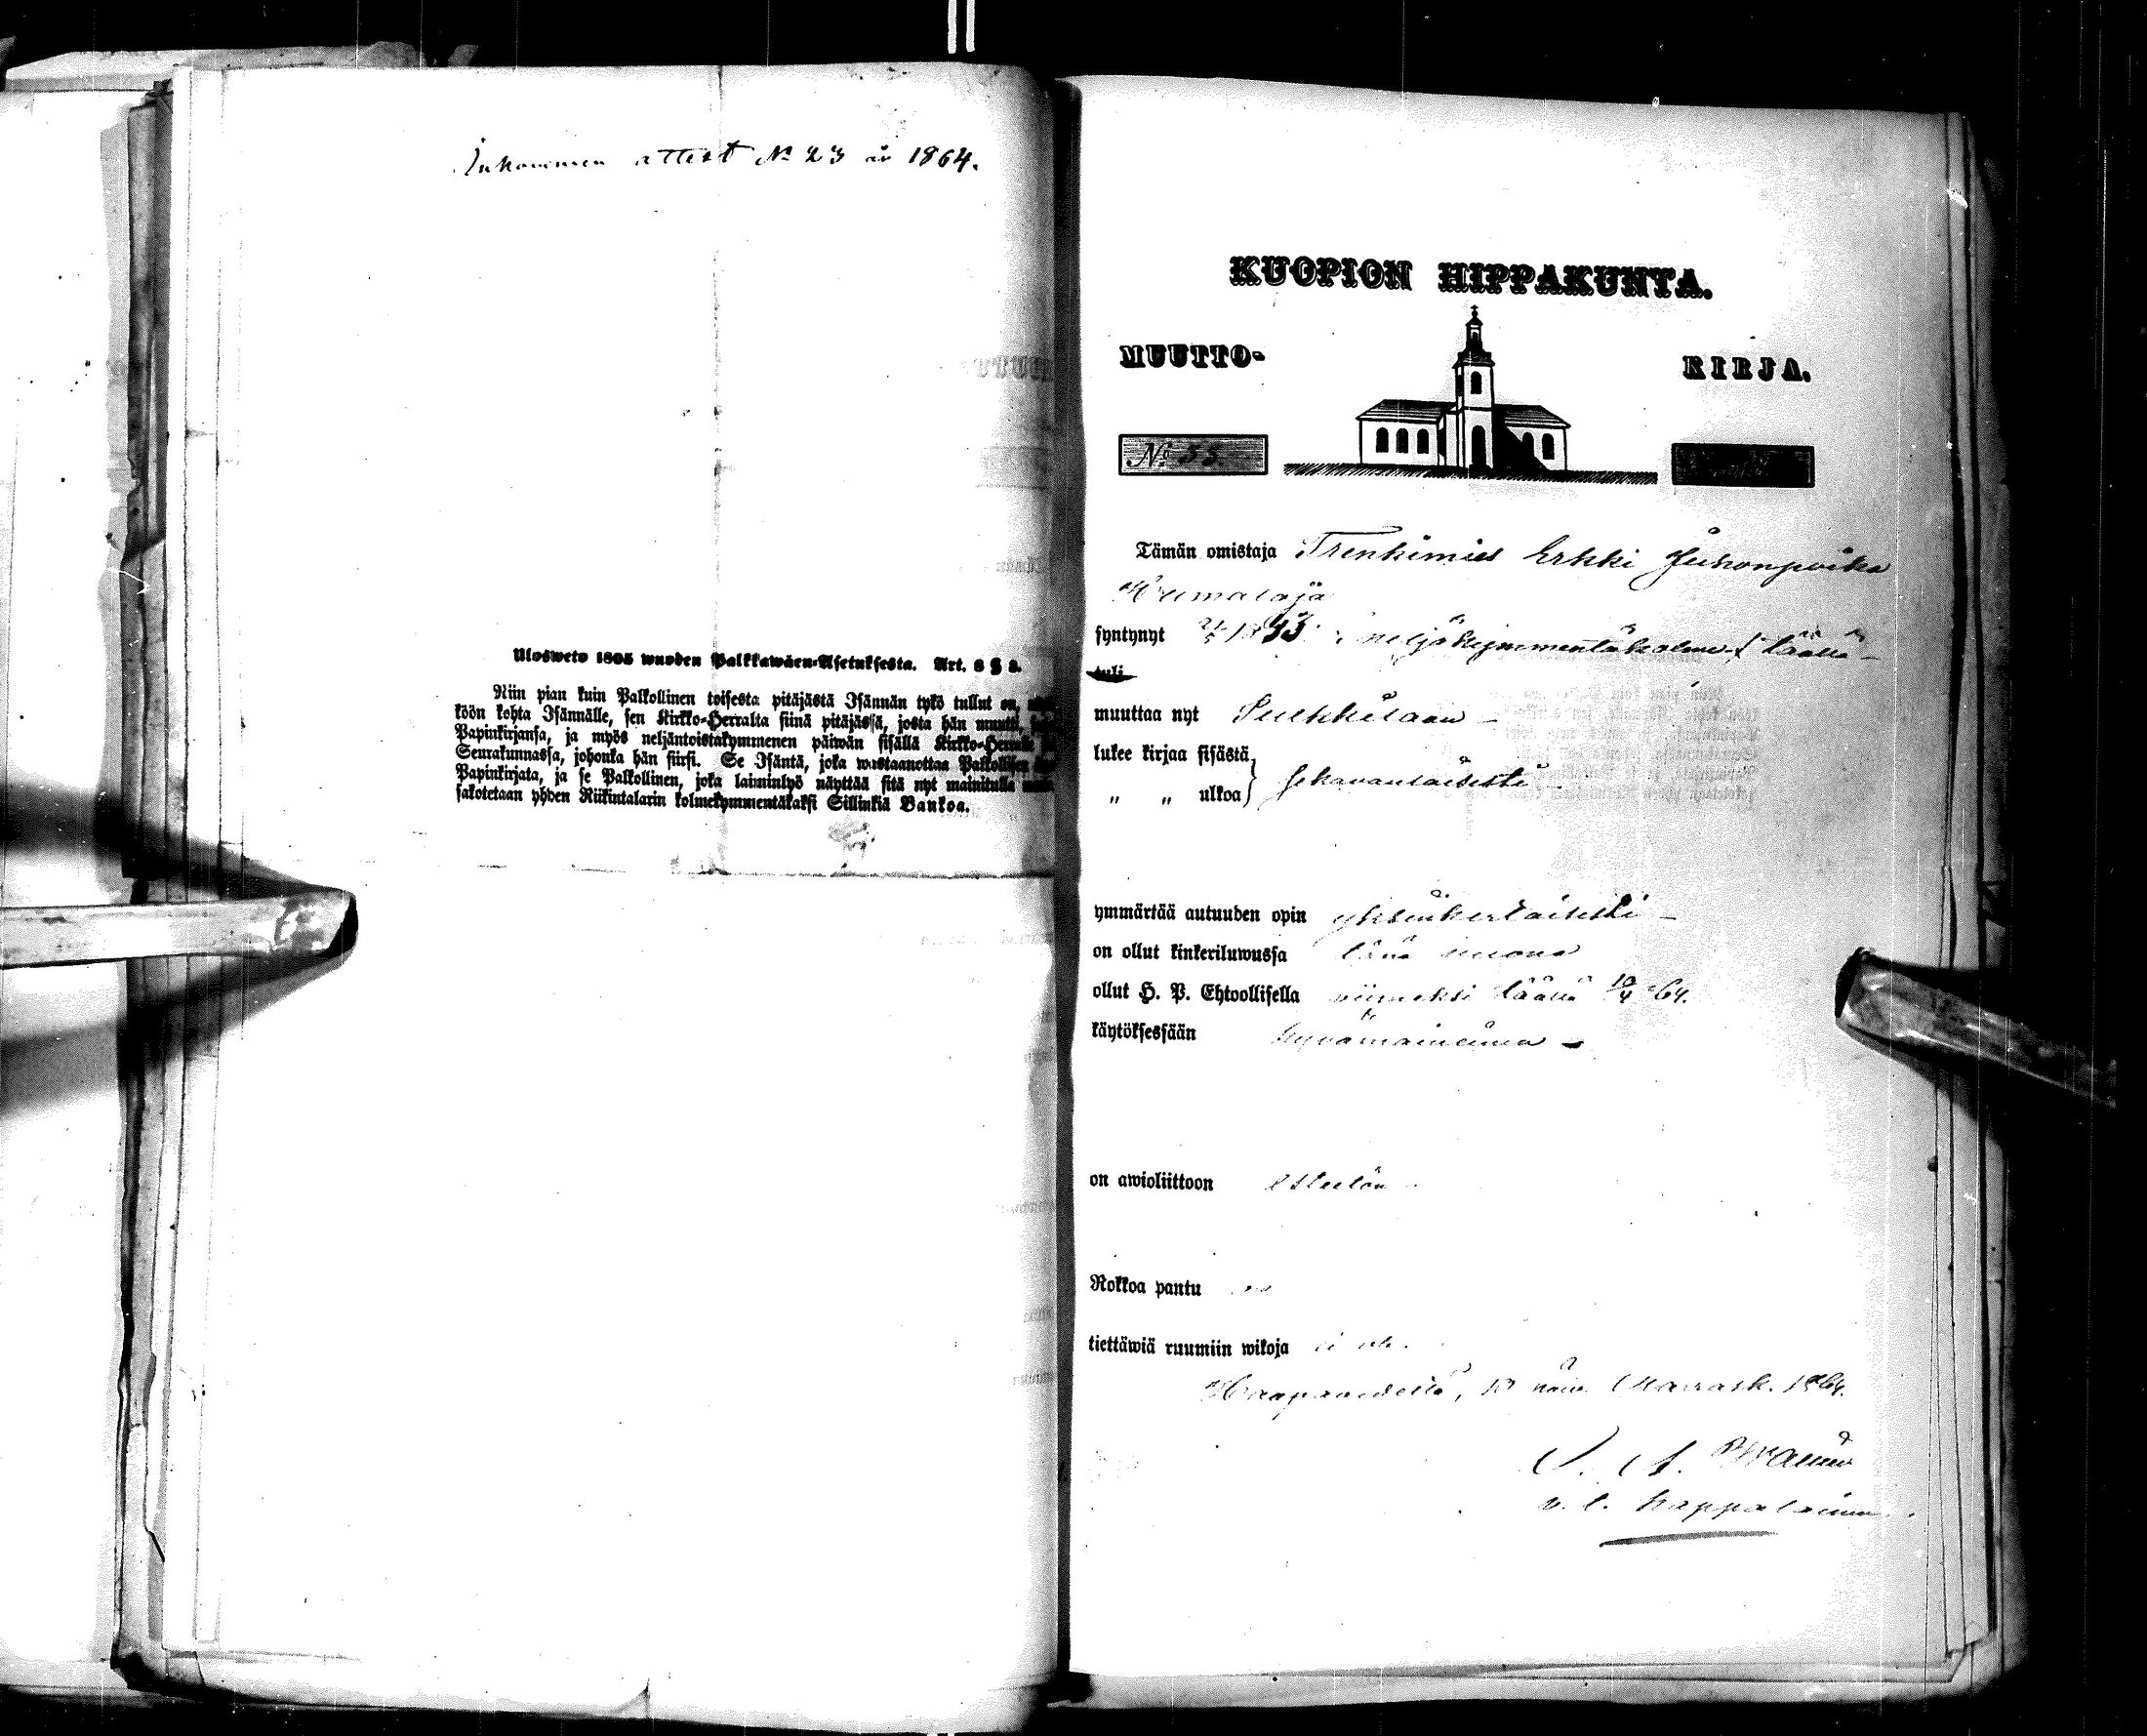 Inkommen attest No 23 år 1864.
Ulosweto 1805 wuoden Palkkawäen-Asetuksesta. Art. 8 § 2.
Niin pian kuin Palkollinen toisesta pitäjästä Isännän tykö tullut on,
köön kohta Isännälle, sen Kirkko-Herralta siinä pitäjässä, josta hän muutti,
Papinkirjansa, ja myös neljäntoistakymmenen päiwän sisällä Kirkko-Herralle
Seurakunnassa, johonka hän siirsi. Se Isäntä, joka wastaanottaa Palkollisen
Papinkirjata, ja se Palkollinen, joka laiminlyö näyttää sitä nyt mainitulla
sakotetaan yhden Riikintalarin kolmekymmentäkaksi Sillinkiä Bankoa.
KUOPION HIPPAKUNTA.
MUUTTO-KIRJA.
No 53.
Tämän omistaja Trenkimies Erkki Juhonpoika
Humaloja
syntynyt 21/5 1843 : neljäkymmentäkolme / täällä -
tuli
muuttaa nyt Pulkkilaan -
lukee kirjaa sisästä
" " ulkoa } sekavanlaisesti
ymmärtää autuuden opin yksinkertaisesti -
on ollut kinkeriluwussa tänä vuona
ollut H. P. Ehtoollisella viimeksi täällä 10/4 64.
käytöksessään hyvämaineinen -
on awioliittoon esteetön
Rokkoa pantu on
tiettäwiä ruumiin wikoja ei ole.
Haapavedellä, 13 päiv. Marrask. 1864.
v. t. kappalainen.